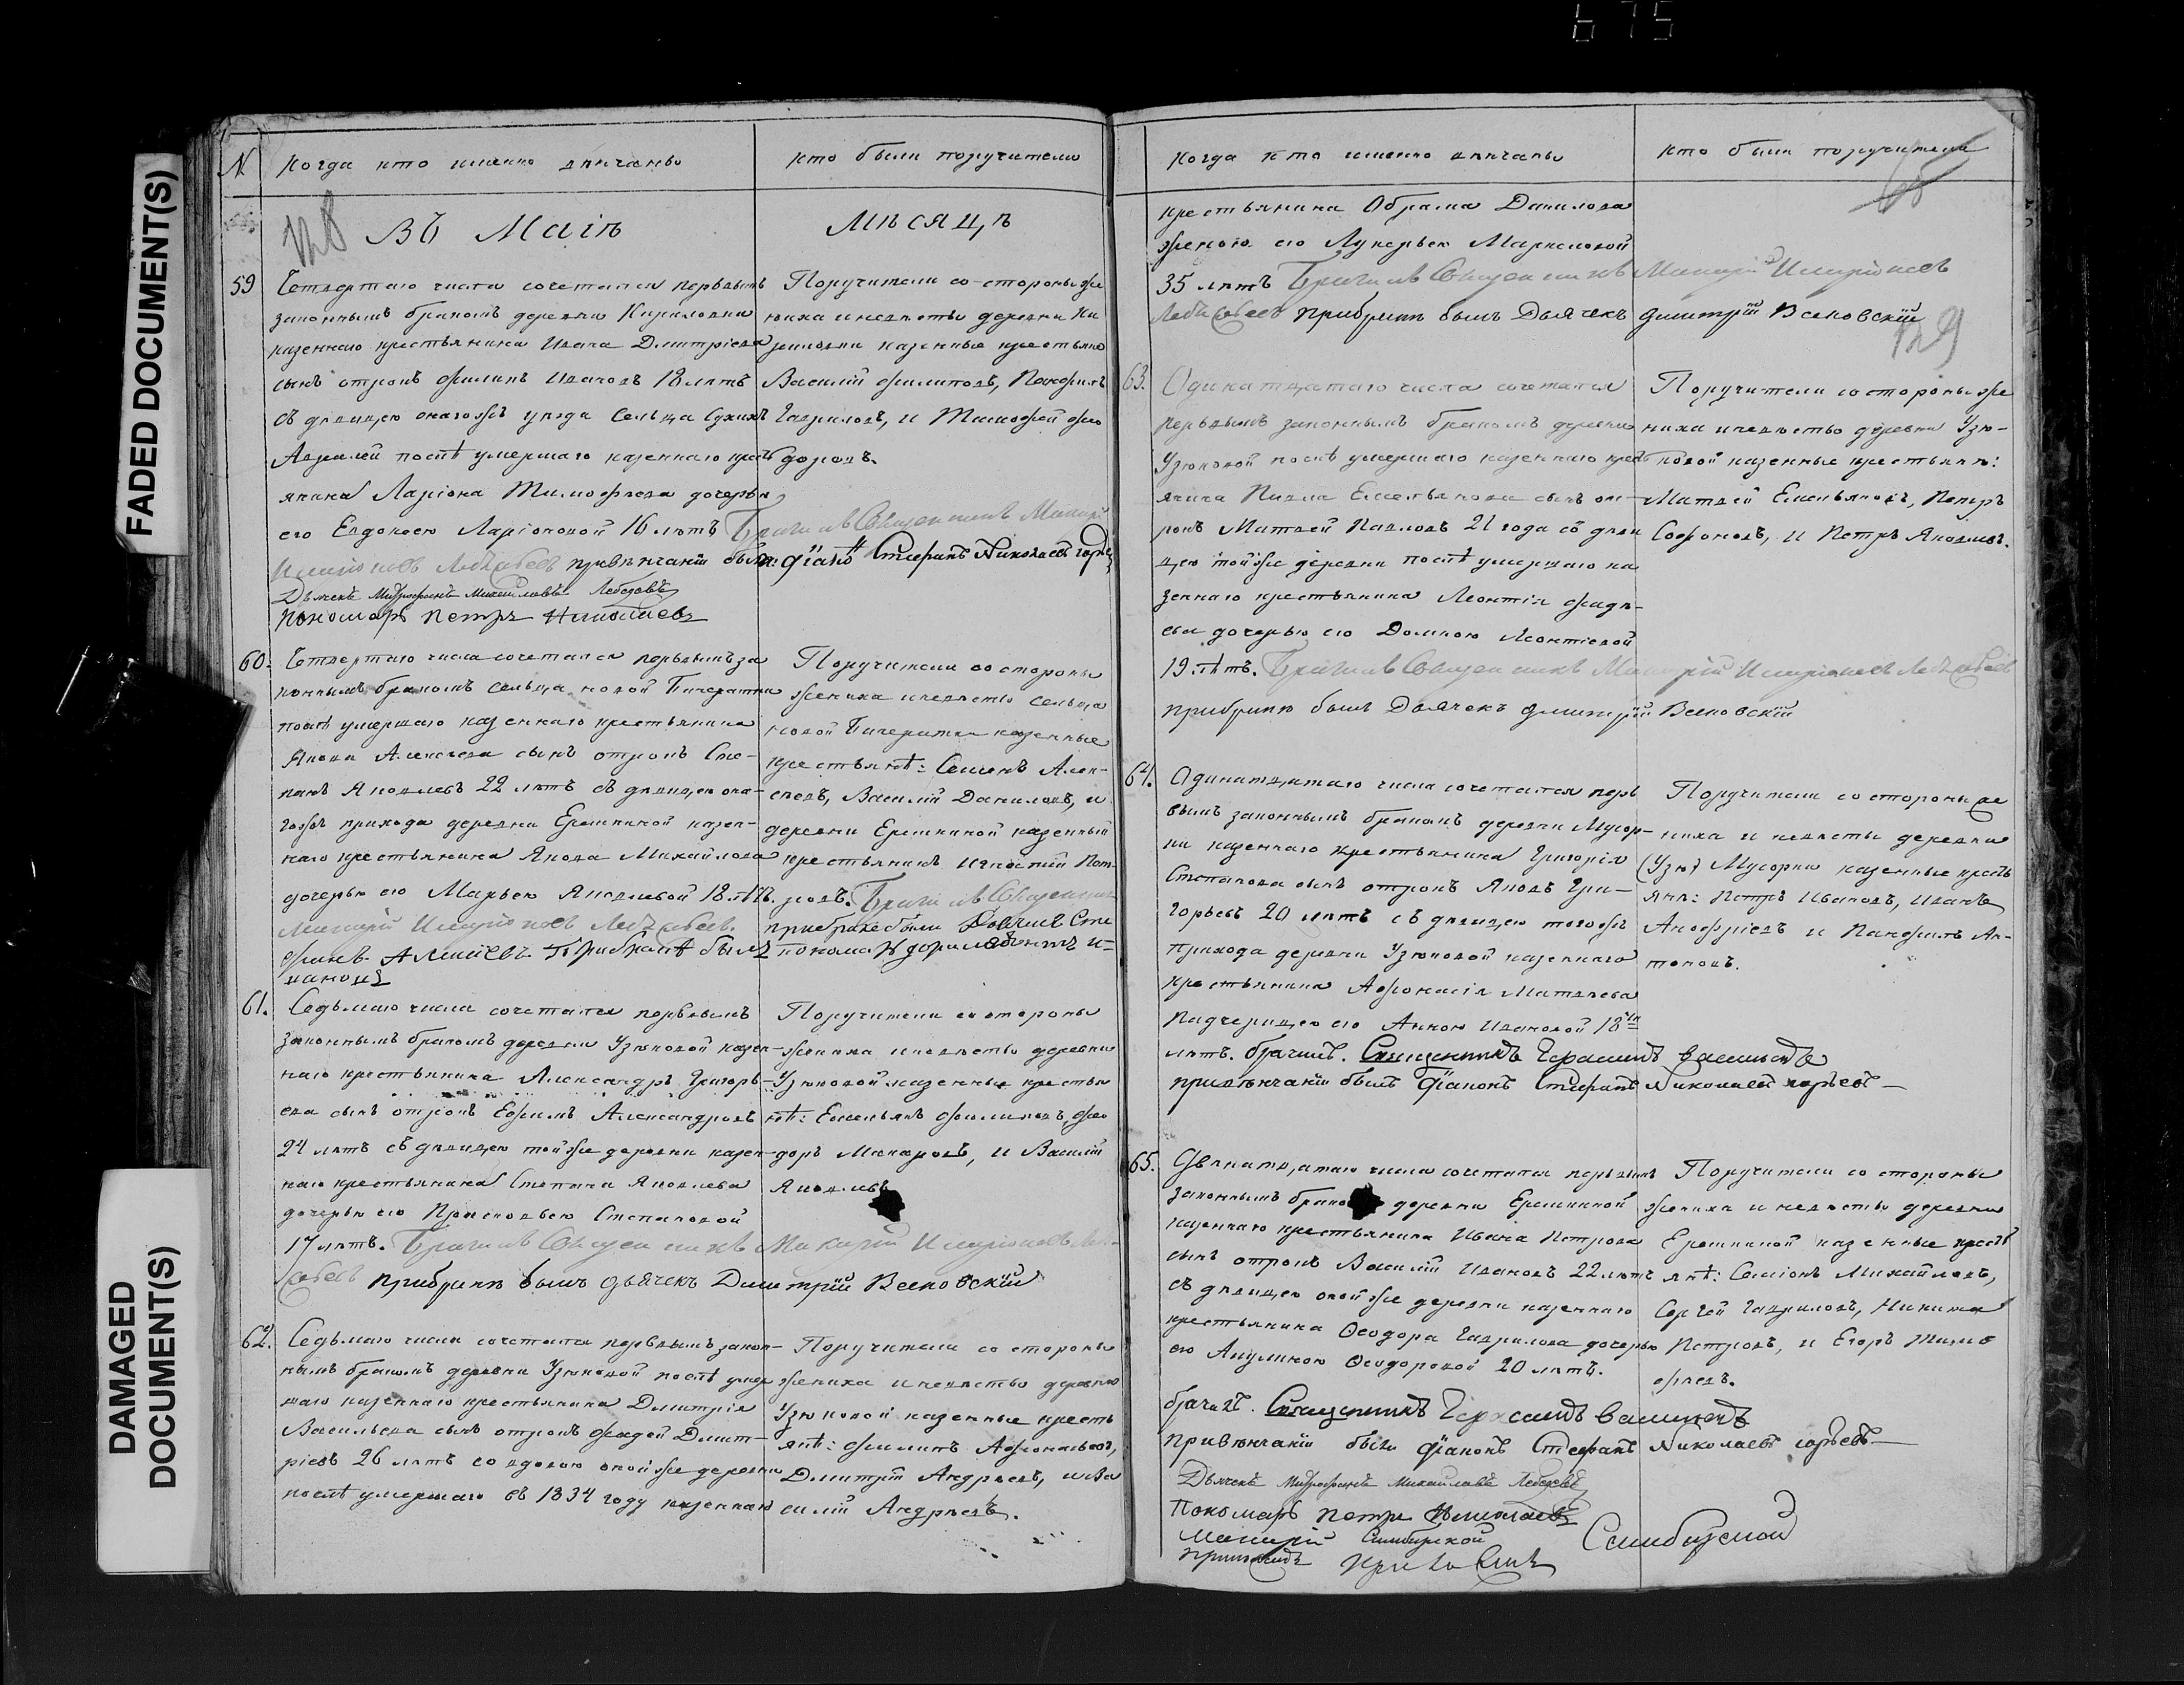 675
FADED DOCUMENT(S)
DAMAGED
DOCUMENT(S)
N
Когда кто именно вѣнчаны
кто были поручители
128
Въ Маіѣ
Мѣсяцѣ
59
Четвертаго числа сочетался первымъ
законнымъ бракомъ деревни Кириловки
казеннаго крестьянина Ивана Дмитріева
сынъ отрокъ Филипъ Ивановъ 18 лѣтъ
съ дѣвицею онагожъ уѣзда Сельца Сухихъ
Авралей послѣ умершаго казеннаго крест
янина Ларіона Тимофѣева дочерью
его Евдокіею Ларіоновой 16 лѣтъ Брачилъ Священникъ Макарій
Лебедевъ при вѣнчаніи были: діаконъ Стефанъ Николаевъ
Дьячекъ Митрофанъ Михайловъ Лебедевъ
Пономарь Петръ Николаевъ
Поручители со стороны же
ниха и невѣсты деревни Ки
риловки казенные крестьяне
Василій Филиповъ, Панфилъ
Гавриловъ, и Тимофей Фео
доровъ.
60.
Четвертаго числа сочетался первымъ за
коннымъ бракомъ сельца новой Бинарадки
послѣ умершаго казеннаго крестьянина
Якова Алексѣева сынъ отрокъ Сте-
панъ Яковлевъ 22 лѣтъ съ дѣвицею она-
гожъ прихода деревни Еремкиной казен-
наго крестьянина Якова Михайлова
дочерью его Марьею Яковлевой 18 лѣтъ.
Макарій Лебедевъ.
Поручители со стороны
жениха и невѣсты сельца
новой казенные
крестьянѣ: Семенъ Алек-
сѣевъ, Василій Даниловъ, и
деревни Еремкиной казенный
крестьянинъ Игнатій Пет-
ровъ. Брачилъ Священникъ
при бракѣ были
61.
Седьмаго числа сочетался первымъ
законнымъ бракомъ деревни Узюковой казен-
наго крестьянина Александръ Григорь-
ева сынъ отрокъ Ефимъ Александровъ
24 лѣтъ съ дѣвицею той же деревни казен-
наго крестьянина Степана Яковлева
дочерью его Прасковьею Степановой
17 лѣтъ. Брачилъ Священникъ Макарій
при бракѣ былъ дьячекъ Димитрій
Поручители со стороны
жениха и невѣсты деревни
Узюковой казенные крестья
нѣ: Емельянъ Филиповъ, Фео
доръ Макаровъ, и Василій
Яковлевъ
62.
Седьмаго числа сочетался первымъ закон-
нымъ бракомъ деревни Узюковой послѣ умер
шаго казеннаго крестьянина Дмитрія
Васильева сынъ отрокъ Фадей Дмит-
ріевъ 26 лѣтъ со вдовою оной же деревни
послѣ умершаго въ 1834 году казеннаго
Поручители со стороны
жениха и невѣсты деревни
Узюковой казенные кресть
янѣ: Филипъ Афонасьевъ,
Дмитрій Андрѣевъ, и Ва
силій Андрѣевъ.
Когда кто именно вѣнчаны
кто были поручители
129
крестьянина Обрама Данилова
женою его Лукерьею Маркеловой
35 лѣтъ Брачилъ Священникъ Макарій
Лебедевъ при бракѣ былъ Дьячекъ Димитрій
63.
Одинатцатаго числа сочетался
первымъ законнымъ бракомъ деревни
Узюковой послѣ умершаго казеннаго крест
янина Павла Емельянова сынъ от-
рокъ Матвей Павловъ 21 года съ дѣви
цею той же деревни послѣ умершаго ка
зеннаго крестьянина Леонтія Фадѣ-
ева дочерью его Домною Леонтіевой
19 лѣтъ. Брачилъ Священникъ Макарій Лебедевъ
при бракѣ былъ Дьячекъ Димитрій
Поручители со стороны же
ниха и невѣсты деревни Узю-
ковой казенные крестьянѣ:
Матвей Емельяновъ, Петръ
Софоновъ, и Петръ Яковлевъ.
64.
Одинатцатаго числа сочетался пер
вымъ законнымъ бракомъ деревни Мусор-
ки казеннаго крестьянина Григорія
Степанова сынъ отрокъ Яковъ Гри-
горьевъ 20 лѣтъ съ дѣвицею тогожъ
прихода деревни Узюковой казеннаго
крестьянина Афонасія Матвѣева
падчерицею его Анною Ивановой 18ти
лѣтъ. брачилъ. Священникъ Герасимъ Васильевъ
при вѣнчаніи былъ діаконъ Стефанъ Николаевъ
Поручители со стороны же
ниха и невѣсты деревни
(Узю) Мусорки казенные кресть
янѣ: Петръ Ивановъ, Иванъ
Анофріевъ и Панфилъ Ан-
тоновъ.
65.
Двенатцатаго числа сочетался первымъ
законнымъ бракомъ деревни Еремкиной
казеннаго крестьянина Ивана Петрова
сынъ отрокъ Василій Ивановъ 22 лѣтъ
съ дѣвицею оной же деревни казеннаго
крестьянина Ѳеодора Гаврилова дочерью
его Акулиною Ѳеодоровой 20 лѣтъ.
брачилъ. Священникъ Герасимъ Васильевъ
при вѣнчаніи былъ діаконъ Стефанъ Николаевъ
Дьячекъ Митрофанъ Михайловъ Лебедевъ
Пономарь Петръ Николаевъ
Поручители со стороны
жениха и невѣсты деревни
Еремкиной казенные крест
янѣ: Семіонъ Михайловъ,
Сергей Гавриловъ, Никита
Петровъ, и Егоръ Тимо
фѣевъ.